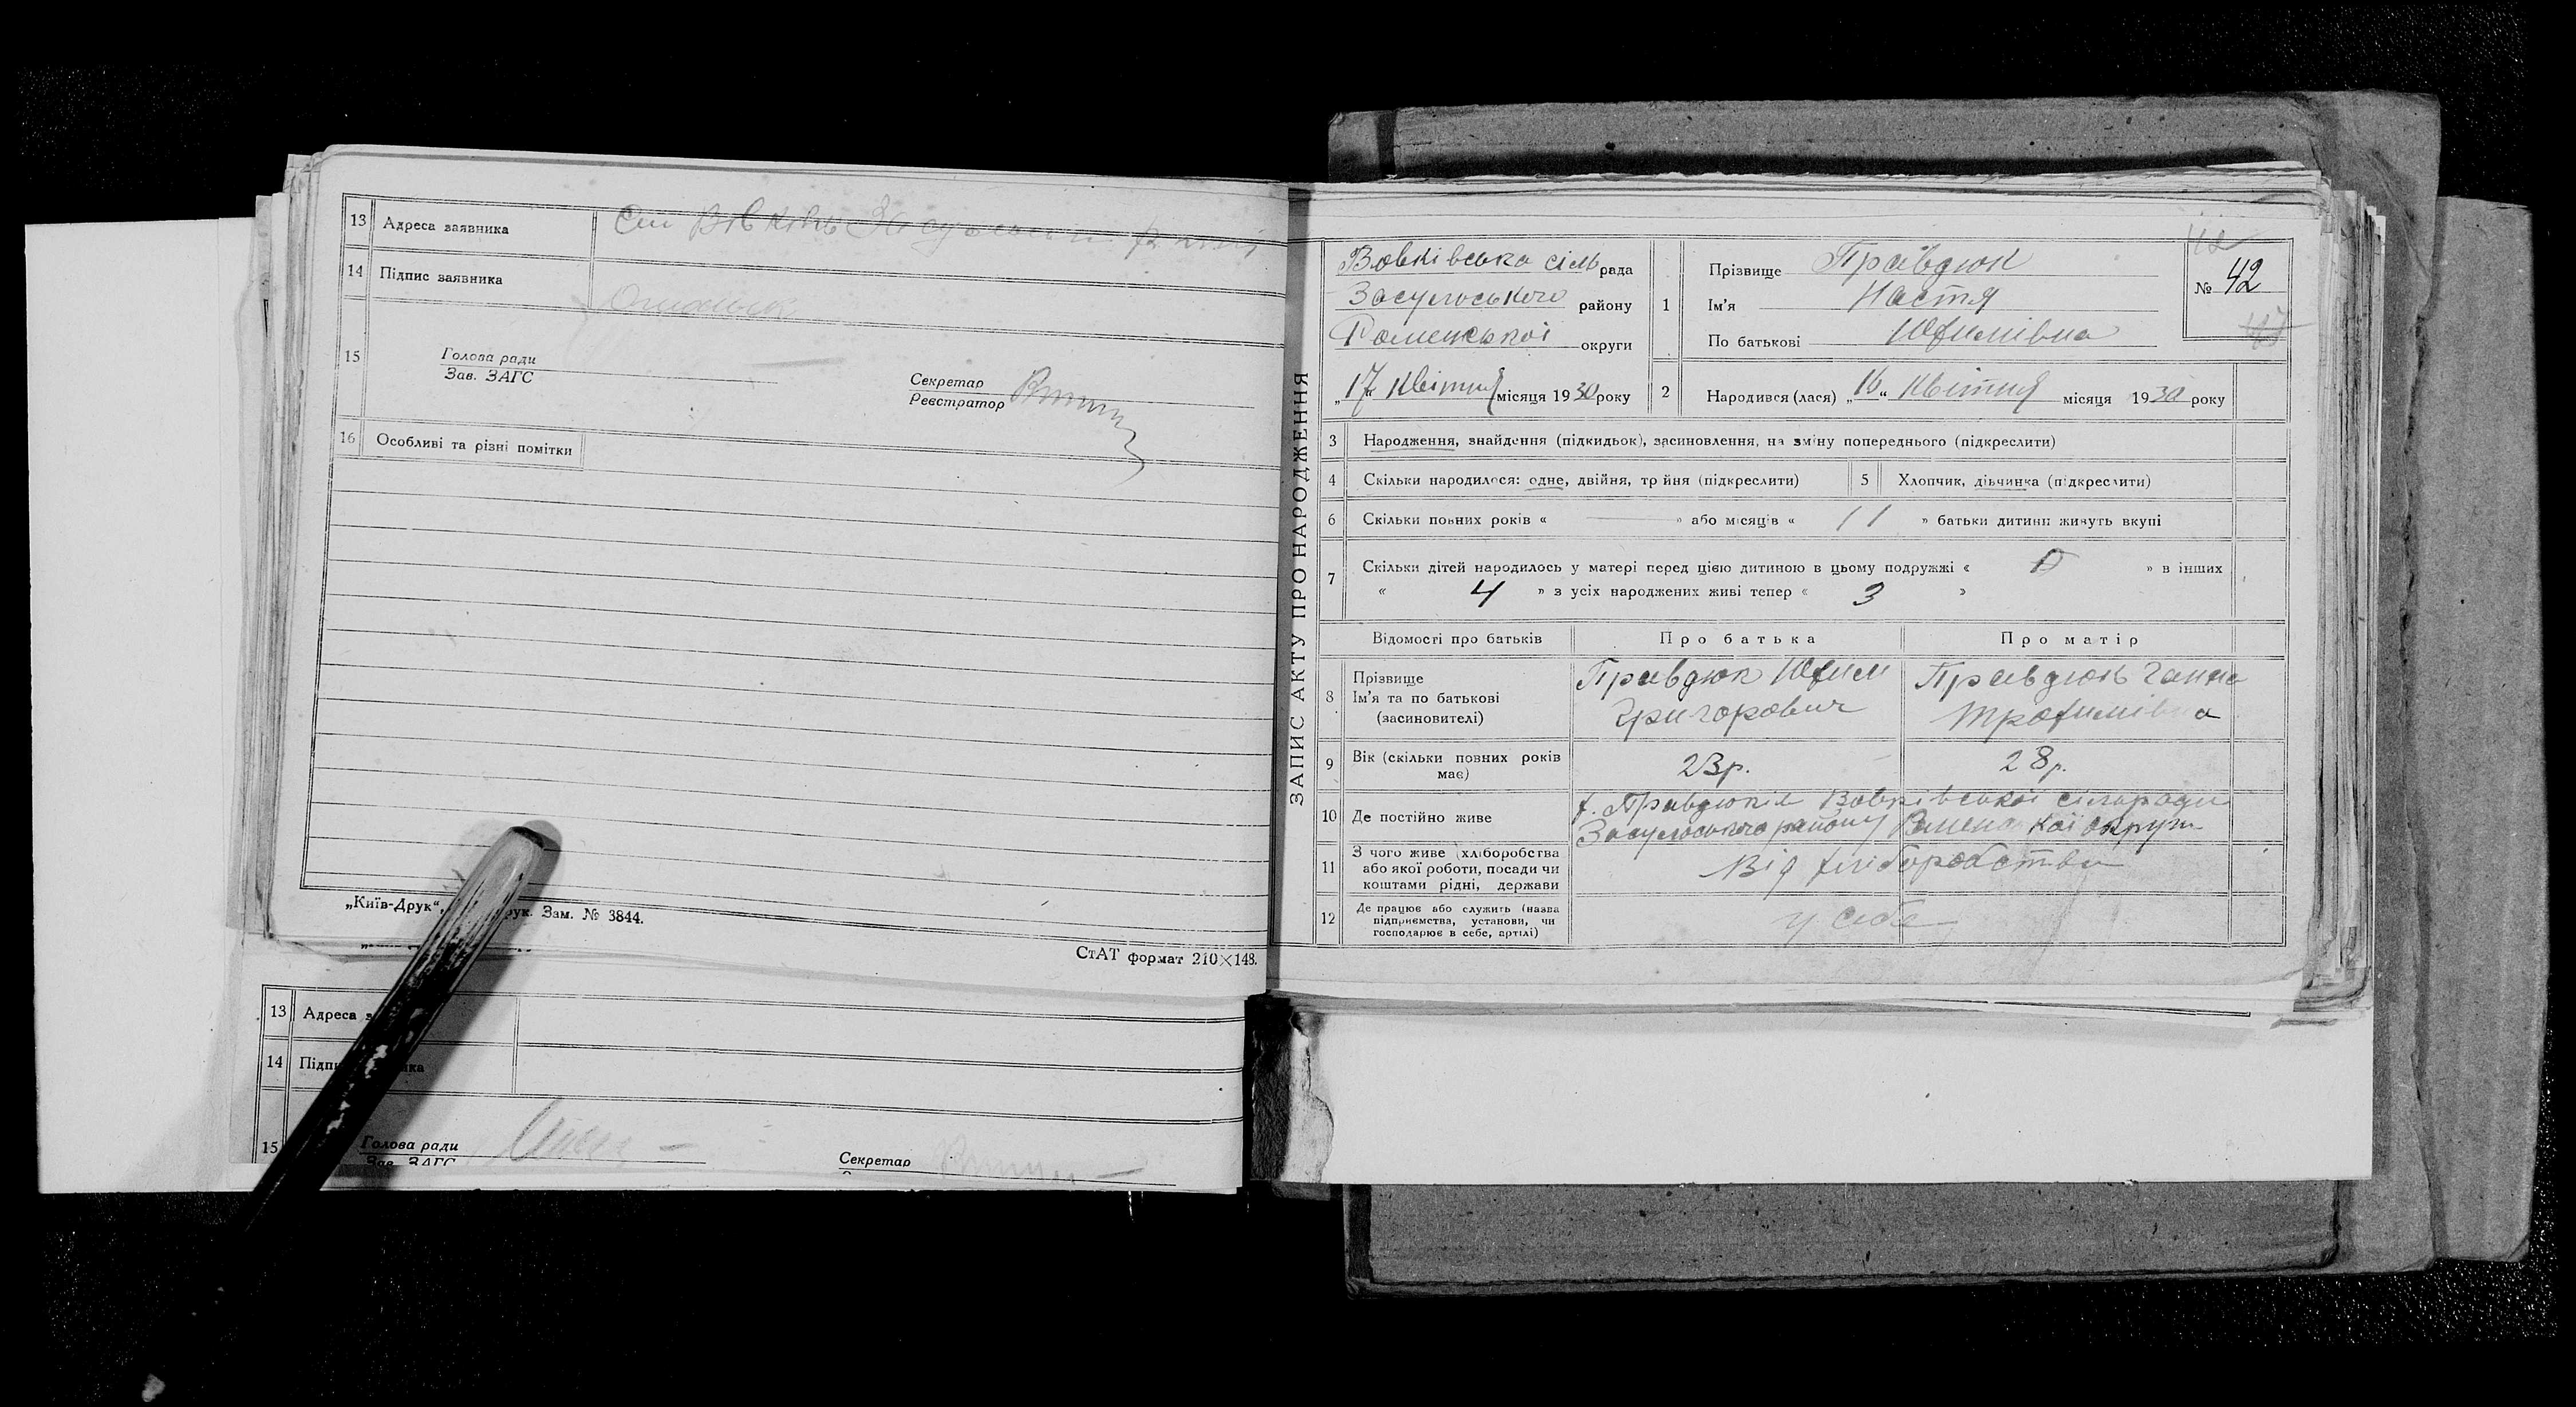 13 Адреса заявника Сел Вовківці Засульський район
14 Підпис заявника
15 Голова ради
Зав. ЗАГС
Секретар
Реєстратор
16 Особливі та різні помітки
„Київ-Друк“, рук. Зам. № 3844.
СтАТ формат 210×148.
13 Адреса з
14 Підпи ика
15 Голова ради
Зав. ЗАГС
Секретар
ЗАПИС АКТУ ПРО НАРОДЖЕННЯ
Вовківська сільрада
Засульського району
Роменської округи
„17“ квітня місяця 1930 року
1 Прізвище Правдюк
Ім'я Настя
По батькові Юфимівна
42
№ 42
47
2 Народився (лася) „16“ квітня місяця 1930 року
3 Народження, знайдення (підкидьок), засиновлення, на зміну попереднього (підкреслити)
4 Скільки народилося: одне, двійня, трійня (підкреслити) 5 Хлопчик, дівчинка (підкреслити)
6 Скільки повних років « — » або місяців « 11 » батьки дитини живуть вкупі
7 Скільки дітей народилось у матері перед цією дитиною в цьому подружжі « 0 » в інших
« 4 » з усіх народжених живі тепер « 3 »
Відомості про батьків Про батька Про матір
8 Прізвище
Ім'я та по батькові
(засиновителі)
Правдюк Юфим
Григорович
Правдюк Ганна
Трофимівна
9 Вік (скільки повних років
має)
23р. 28р.
10 Де постійно живе
х. Правдюків Вовківської сільради
Засульського району Роменської округи
11 З чого живе (хліборобства
або якої роботи, посади чи
коштами рідні, держави
Від хліборобства
12 Де працює або служить (назва
підприємства, установи, чи
господарює в себе, артілі)
у себе